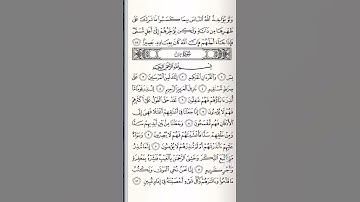 وَلَوْ يُؤَاخِذُ ٱللَّهُ ٱلنَّاسَ بِمَا كَسَبُوا۟ مَا تَرَكَ عَلَىٰ
ظَهْرِهَا مِن دَآبَّةٍ وَلَٰكِن يُؤَخِّرُهُمْ إِلَىٰٓ أَجَلٍ مُّسَمًّى
فَإِذَا جَآءَ أَجَلُهُمْ فَإِنَّ ٱللَّهَ كَانَ بِعِبَادِهِۦ بَصِيرًۢا ٤٥
سُورَةُ يسٓ
بِسْمِ ٱللَّهِ ٱلرَّحْمَٰنِ ٱلرَّحِيمِ
يسٓ ١ وَٱلْقُرْءَانِ ٱلْحَكِيمِ ٢ إِنَّكَ لَمِنَ ٱلْمُرْسَلِينَ ٣
عَلَىٰ صِرَٰطٍ مُّسْتَقِيمٍ ٤ تَنزِيلَ ٱلْعَزِيزِ ٱلرَّحِيمِ ٥ لِتُنذِرَ قَوْمًا
مَّآ أُنذِرَ ءَابَآؤُهُمْ فَهُمْ غَٰفِلُونَ ٦ لَقَدْ حَقَّ ٱلْقَوْلُ عَلَىٰٓ أَكْثَرِهِمْ
فَهُمْ لَا يُؤْمِنُونَ ٧ إِنَّا جَعَلْنَا فِىٓ أَعْنَٰقِهِمْ أَغْلَٰلًا فَهِىَ إِلَى
ٱلْأَذْقَانِ فَهُم مُّقْمَحُونَ ٨ وَجَعَلْنَا مِنۢ بَيْنِ أَيْدِيهِمْ سَدًّا
وَمِنْ خَلْفِهِمْ سَدًّا فَأَغْشَيْنَٰهُمْ فَهُمْ لَا يُبْصِرُونَ ٩ وَسَوَآءٌ
عَلَيْهِمْ ءَأَنذَرْتَهُمْ أَمْ لَمْ تُنذِرْهُمْ لَا يُؤْمِنُونَ ١٠ إِنَّمَا تُنذِرُ
مَنِ ٱتَّبَعَ ٱلذِّكْرَ وَخَشِىَ ٱلرَّحْمَٰنَ بِٱلْغَيْبِ فَبَشِّرْهُ بِمَغْفِرَةٍ
وَأَجْرٍ كَرِيمٍ ١١ إِنَّا نَحْنُ نُحْىِ ٱلْمَوْتَىٰ وَنَكْتُبُ
مَا قَدَّمُوا۟ وَءَاثَٰرَهُمْ وَكُلَّ شَىْءٍ أَحْصَيْنَٰهُ فِىٓ إِمَامٍ مُّبِينٍ ١٢